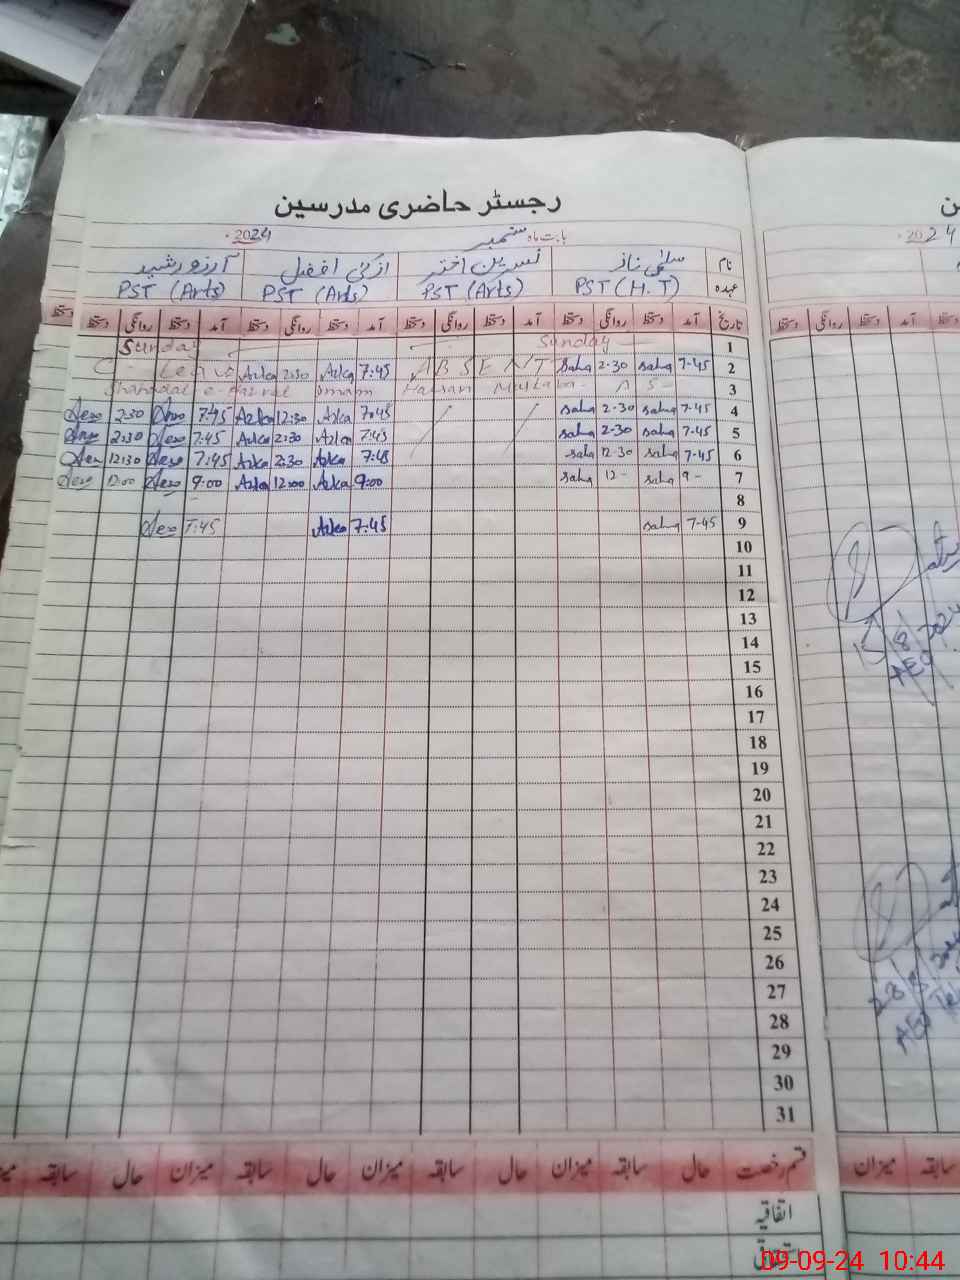 رجسٹر حاضری مدرسین
بابت ماہ ستمبر 2024
نام سلمیٰ ناز نسرین اختر ازکیٰ افضل آرزو رشید
عہدہ PST (H.T) PST (Arts) PST (Arts) PST (Arts)
تاریخ آمد دستخط روانگی دستخط آمد دستخط روانگی دستخط آمد دستخط روانگی دستخط آمد دستخط روانگی دستخط
1 Sunday Sunday
2 7-45 saha 2-30 saha ABSENT 7:45 Azka 2:30 Azka C. Leave
3 imam Hassan
4 7-45 saha 2-30 saha 7:45 Azka 12:30 Azka 7:45 2:30
5 7-45 saha 2-30 saha 7:45 Azka 2:30 Azka 7:45 2:30
6 7-45 saha 12-30 saha 7:45 Azka 2:30 Azka 7:45 12:30
7 9- saha 12- saha 9:00 Azka 12:00 Azka 9:00 12:00
8
9 7-45 saha 7:45 Azka 7:45
10
11
12
13
14
15
16
17
18
19
20
21
22
23
24
25
26
27
28
29
30
31
قسم رخصت حال سابقہ میزان حال سابقہ میزان حال سابقہ میزان حال سابقہ
اتفاقیہ
2024
دستخط روانگی دستخط آمد
15/8/2024
AEO
28/8/
AEO
میزان سابقہ
09-09-24 10:44